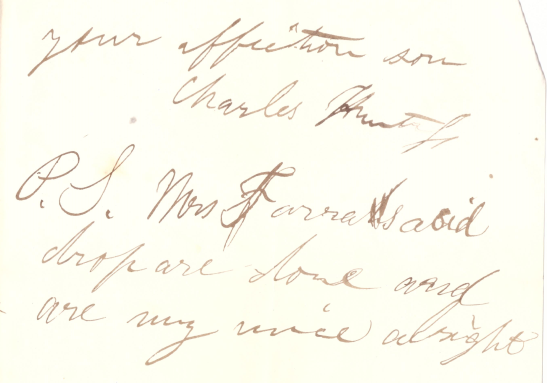 your affection son
Charles Hunt
P.S. Mrs Farralls acid
drop are done and
are my mice alright